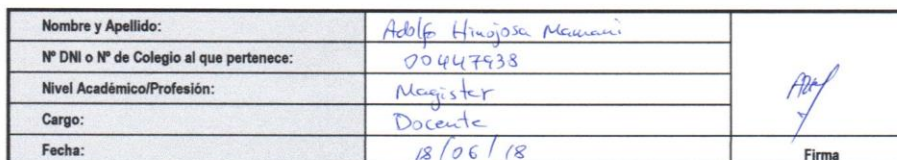 Nombre y Apellido: Adolfo Hinojosa Mamani
Nº DNI o Nº de Colegio al que pertenece: 00447938
Nivel Académico/Profesión: Magister
Cargo: Docente
Fecha: 18/06/18
Firma